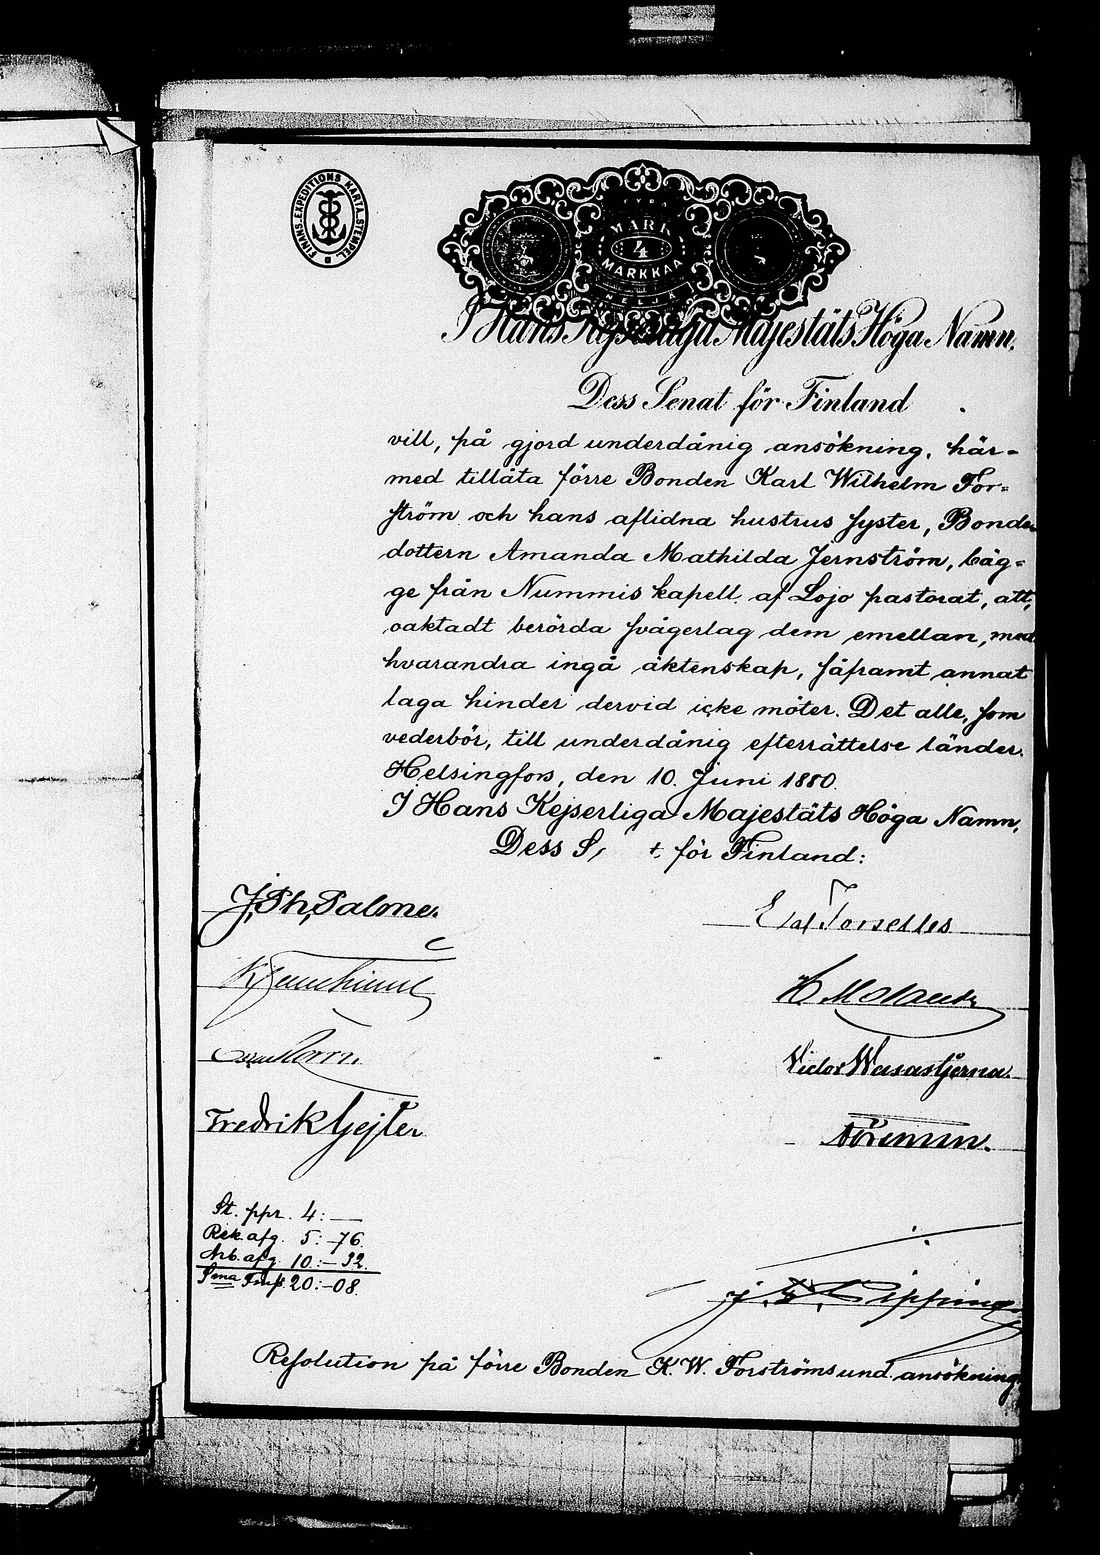 FINANS.EXPEDITIONS KARTA.STEMPEL.
FYRA
MARK
4
MARKKAA
NELJÄ
I Hans Kejserliga Majestäts Höga Namn.
Dess Senat för Finland
vill, på gjord underdånig ansökning, här-
med tillåta förre Bonden Karl Wilhelm For-
ström och hans aflidna hustrus syster, Bonde
dottern Amanda Mathilda Jernström, båg-
ge från Nummis kapell af Lojo pastorat, att,
oaktadt berörda svågerlag dem emellan, med
hvarandra ingå äktenskap, såframt annat
laga hinder dervid icke möter. Det alle, som
vederbör, till underdånig efterrättelse länder.
Helsingfors, den 10. Juni 1880.
I Hans Kejserliga Majestäts Höga Namn,
Dess S t för Finland:
J, Ph, Palmé.
Torsellès
H Molander
Victor Wasastjerna.
Fredrik Gejter
St. ppr. 4: —
Rek. afg. 5: -76.
Arb. afg. 10: -32.
Sma Fmk 20: -08.
Resolution på förre Bonden K. W. Forströms und. ansökning